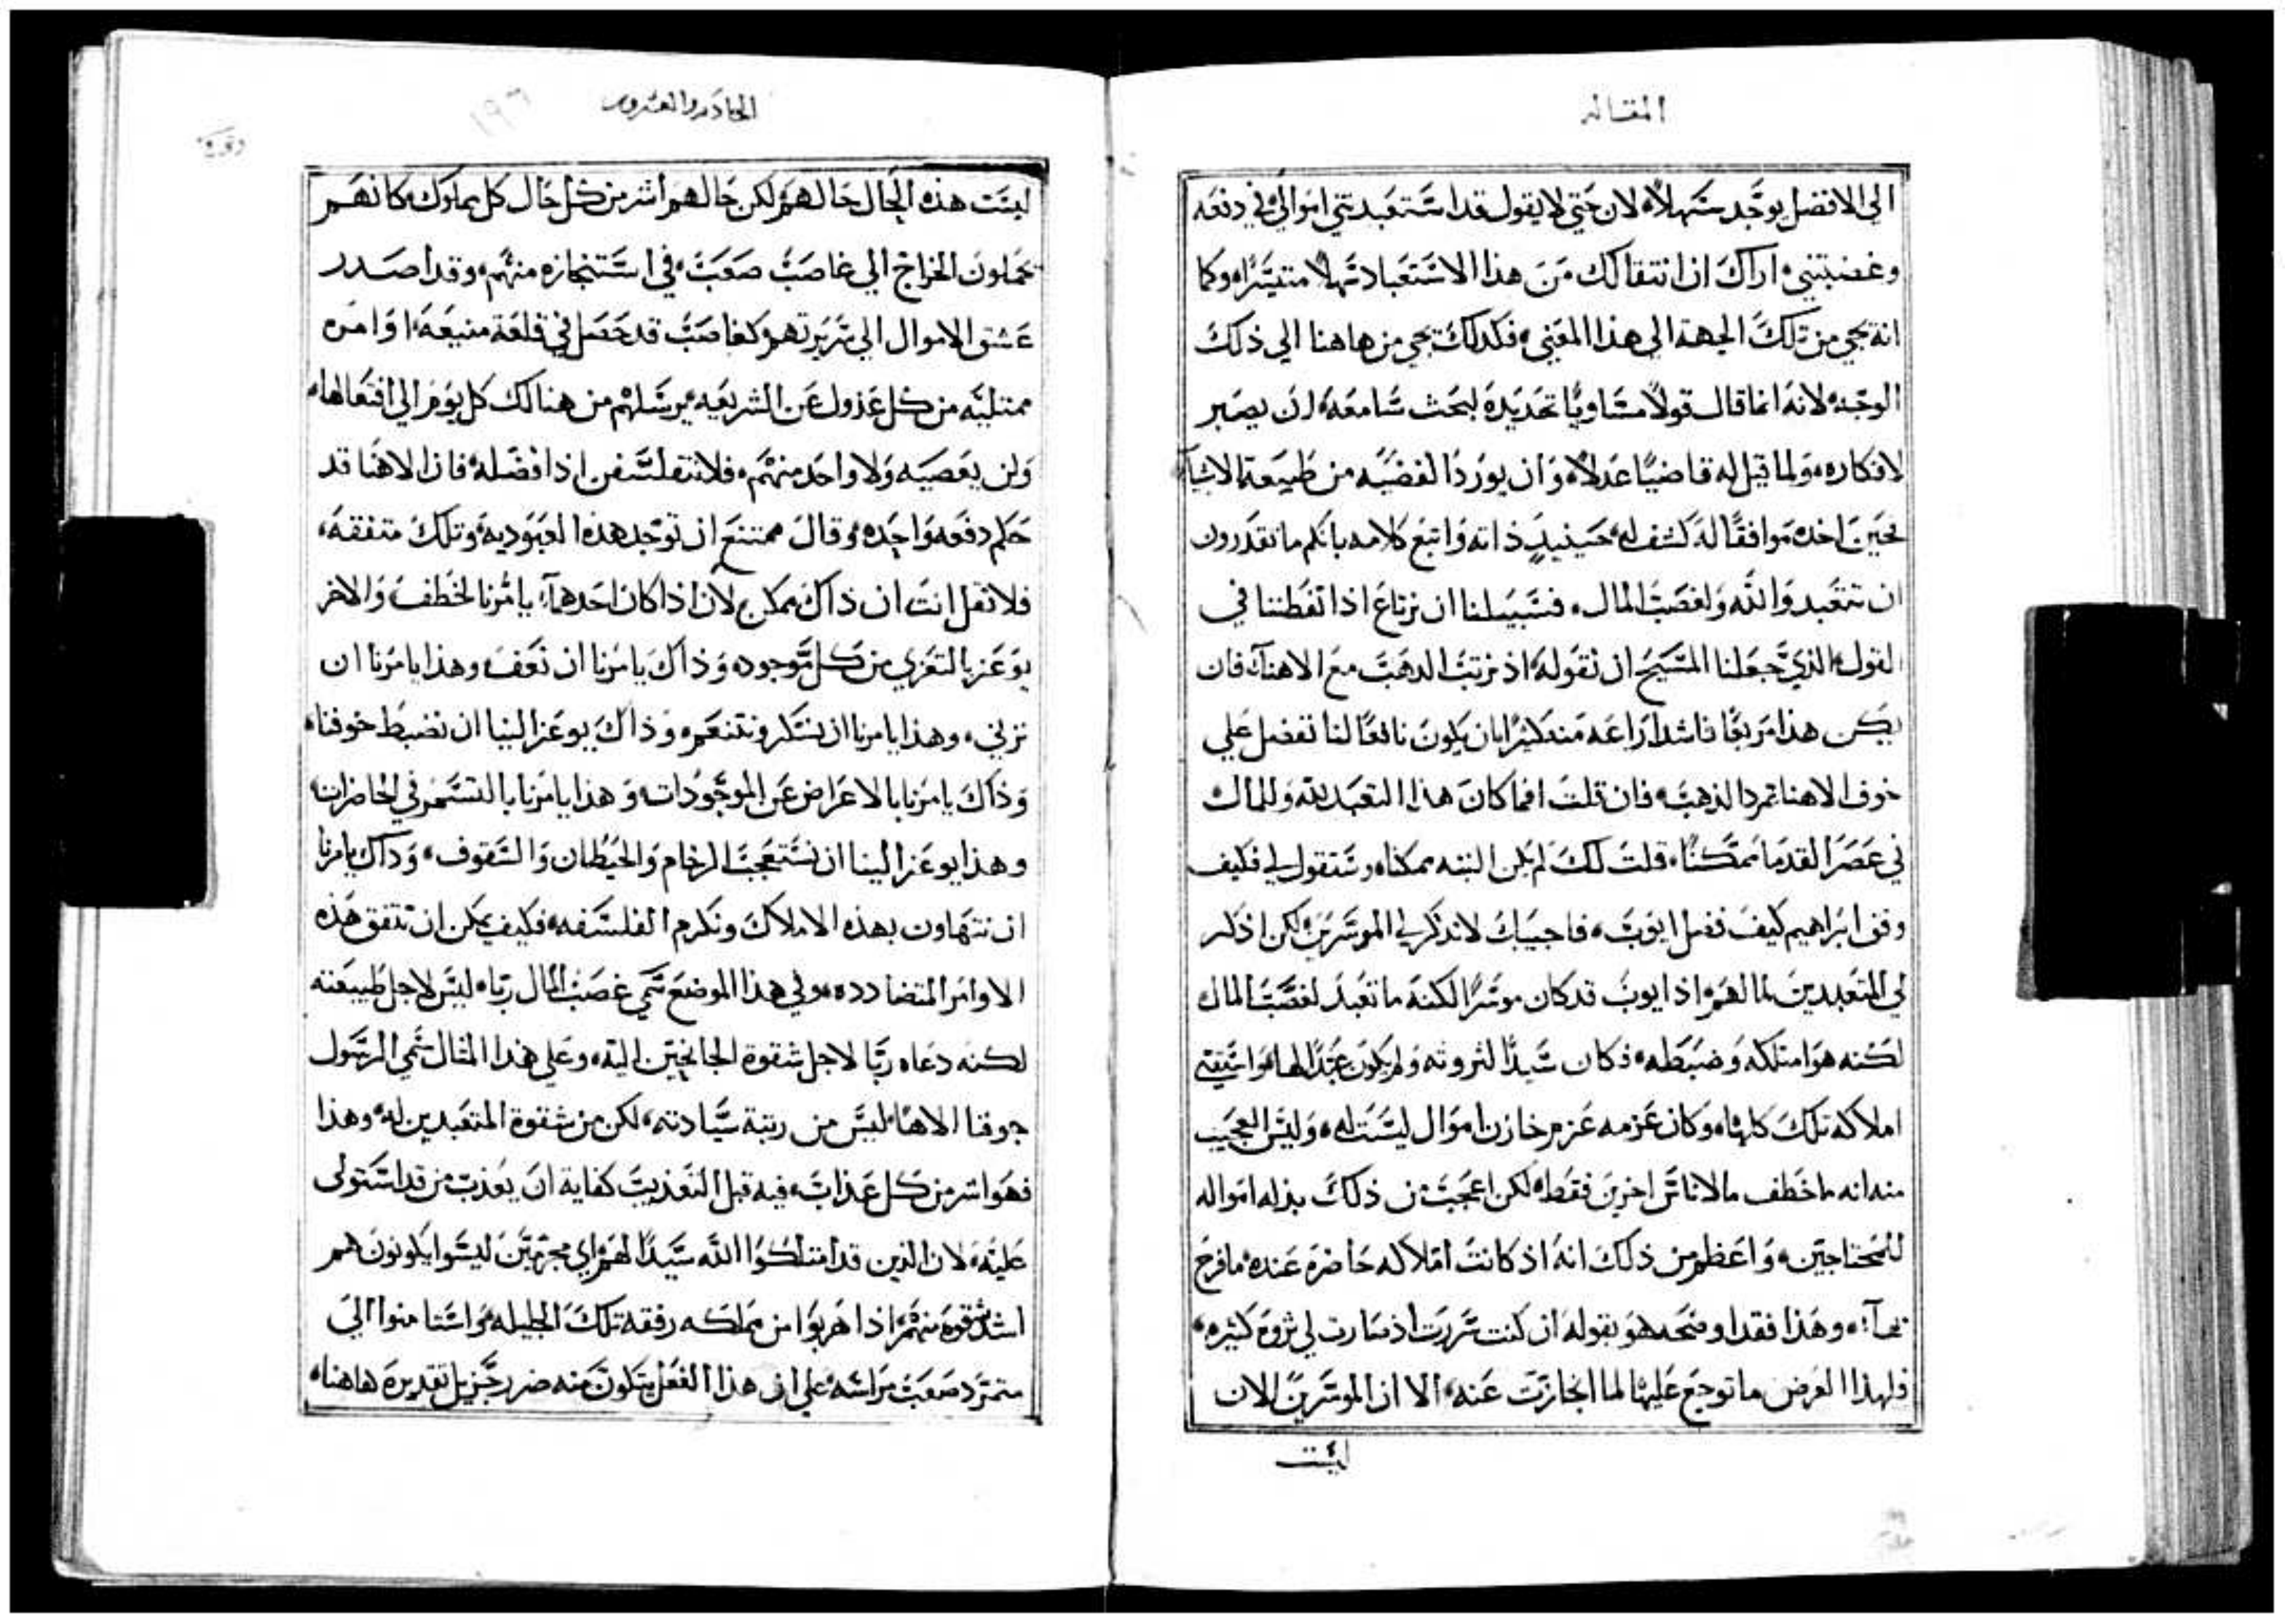 المقاله
الي الافضل يوجد سهلاً، لان حتي لا يقول قد استعبدتني اموالي في دفعه
وغضبتني، اراك ان انتقالك من هذا الاستعباد سهلاً متيسرًا، وكما
انه يجي من تلك الجهة الي هذا المعني، فكذلك يجي من هاهنا الي ذلك
الوجه، لانه انما قال قولاً مساويًا تحديده لبحث سامعه، ان يصير
لافكاره، ولما قيل له قاضيًا عدلاً، وان يورد القضيه من طبيعة الاشيآ
لحين اخذه موافقًا له كشف له حينيذٍ ذاته واتبع كلامه بانكم ما تقدرون
ان تتعبدوا لله ولغصب المال، فسبيلنا ان نرتاع اذا تفطننا في
القول الذي جعلنا المسيح ان نقوله، اذ نرتب الذهب مع الاهنا، فان
يكن هذا مريعًا فاشد اراعه منه كثيرًا بان يكون نافعًا لنا تفضل علي
خوف الاهنا تمرد الذهب، فان قلت افما كان هذا التعبد لله وللمال
في عصر القدما ممكنًا، قلت لك لم يكن البته ممكنا، وستقول لي فكيف
وفق ابراهيم كيف فضل ايوب، فاجيبك لا تذكر لي الموسرين، لكن اذكر
لي المتعبدين لمالهم، اذ ايوب قد كان موسرًا لكنه ما تعبد لغصب المال
لكنه هو امتلكه وضبطه، فكان سيدًا لثروته ولم يكون عبدًا لها، واستيقني
املاكه تلك كلها، وكان عزمه عزم خازن اموال ليست له، وليس العجيب
منه انه ما خطف مال اناس اخرين فقط، لكن اعجب من ذلك بذله امواله
للمحتاجين، واعظم من ذلك انه اذ كانت املاكه حاضرة عنده ما فرح
بها، وهذا فقد اوضحه هو بقوله ان كنت سررت اذ صارت لي ثروة كثيره،
فلهذا الغرض ما توجع عليها لما انجازت عنه، الا ان الموسرين الان
ليست
الحاديه والعشرون
١٩٦
ليست هذه الحال حالهم لكن حالهم اشر من كل حال كل مملوك، كانهم
يحملون الخراج الي غاصب صعب، في استنجازه منهم، وقد اصدر
عشق الاموال الي سريرتهم كغاصب قد حصل في قلعة منيعه، اوامره
ممتليه من كل عدول عن الشريعه، يرسلهم من هنالك كل يوم الي افتعالها،
ولن يعصيه ولا واحد منهم، فلا تتفلسفن اذا فضله، فان الاهنا قد
حكم دفعه واحده، وقال ممتنع ان توجد هذه العبوديه، وتلك متفقه،
فلا تقل انت ان ذاك ممكن لان اذا كان احدهما، يامرنا لخطف والاخر
يوعز بالتعري من كل موجود، وذاك يامرنا ان نعف وهذا يامرنا ان
نزني، وهذا يامرنا ان نسكر ونتنعم، وذاك يوعز الينا ان نضبط خوفنا،
وذاك يامرنا بالاعراض عن الموجودات، وهذا يامرنا بالتسمر في الحاضرات
وهذا يوعز الينا ان نستعجب الرخام والحيطان والسقوف، وذاك يامرنا
ان نتهاون بهذه الاملاك ونكرم الفلسفه، فكيف يمكن ان تتفق هذه
الاوامر المتضادده، وفي هذا الموضع سمي غصب المال ربًا، ليس لاجل طبيعته
لكنه دعاه ربًا لاجل شقوة الجانحين اليه، وعلي هذا المثال سمي الرسول
جوفنا الاهًا، ليس من رتبة سيادته، لكن من شقوة المتعبدين له، وهذا
فهو اشر من كل عذاب، فيه قبل التعذيب كفاية ان يعذب من قد استولي
عليه، لان الذين قد امتلكوا الله سيدًا لهم، اي مجرمين ليسوا يكونون هم
اشد شقوة منهم، اذا هربوا من مملكه رفقه تلك الجليله، واستامنوا الي
متمرد صعب مراسه، علي ان هذا الفعل يتكون منه ضرر جزيل تقديره هاهنا،